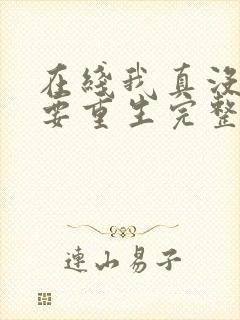 在线我真没
要重生完整
連山易子